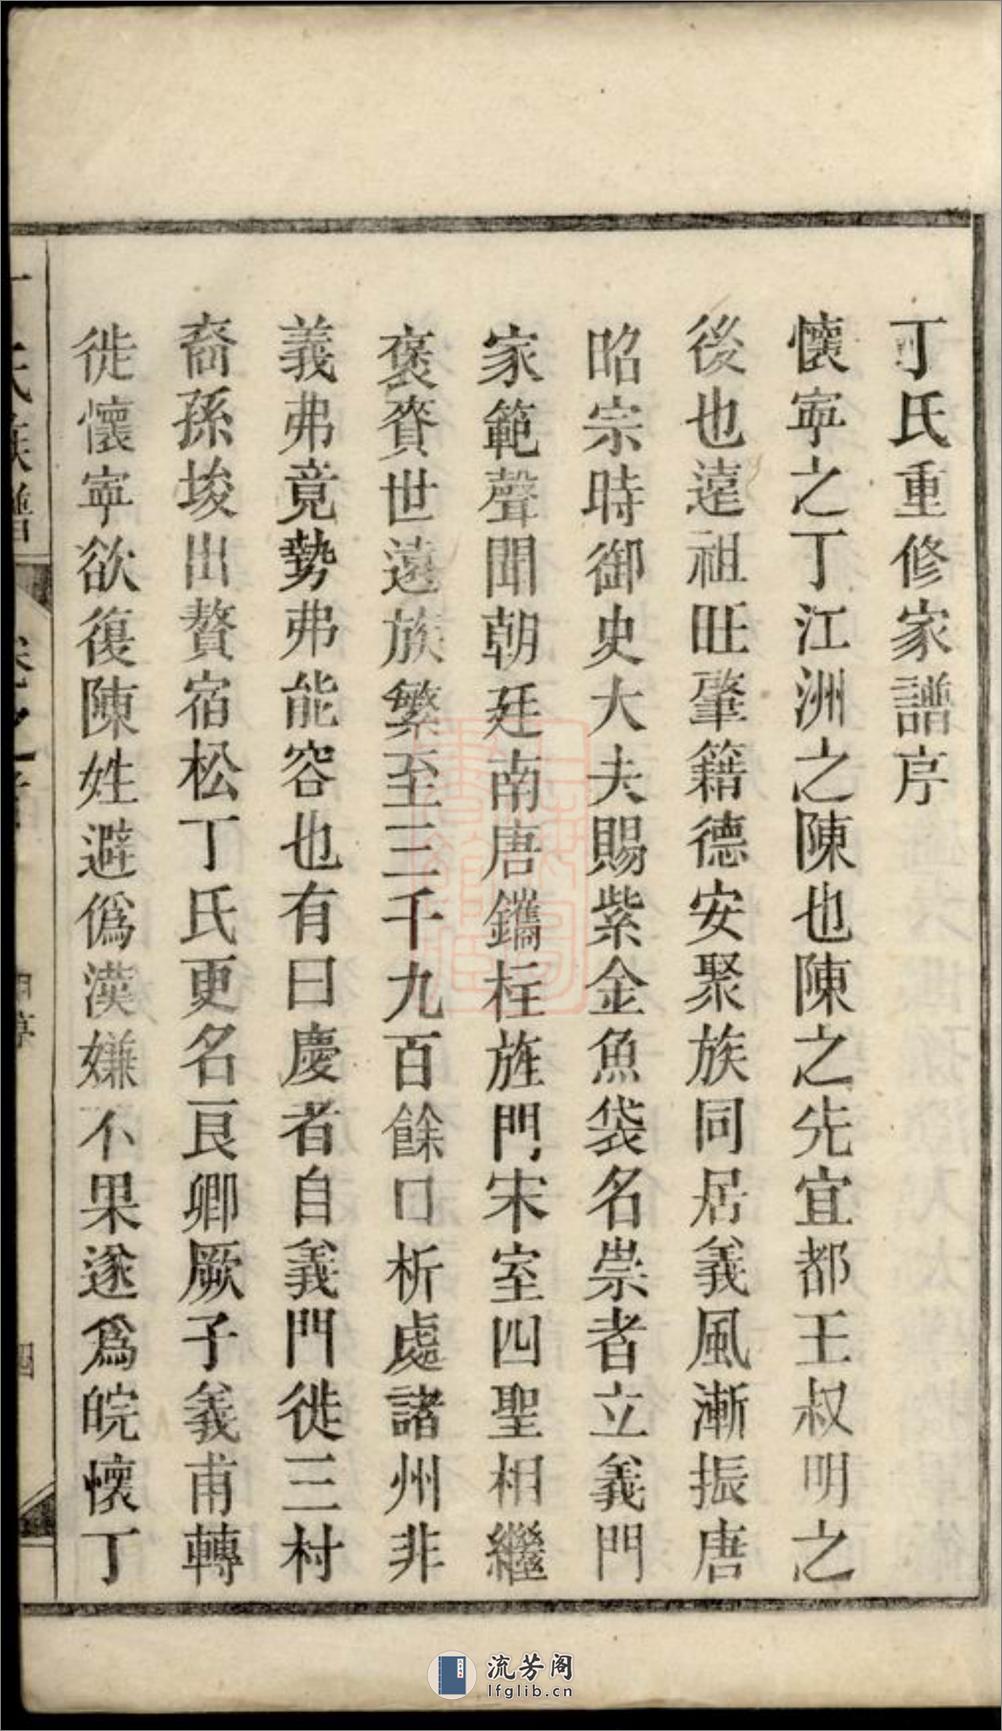 丁氏重修家譜序
懷寧之丁江洲之陳也陳之先宜都王叔明之
後也遠祖旺肇籍德安聚族同居義風漸振唐
昭宗時御史大夫賜紫金魚袋名崇者立義門
家範聲聞朝廷南唐鐫枉旌門宋室四聖相繼
褒賚世遠族繁至三千九百餘口析處諸州非
義弗竟勢弗能容也有曰慶者自義門徙三村
裔孫埈出贅宿松丁氏更名艮卿厥子義甫轉
徙懷寧欲復陳姓避僞漢嫌不果遂爲皖懷丁
丁氏族譜
四
流芳阁
lfglib.cn